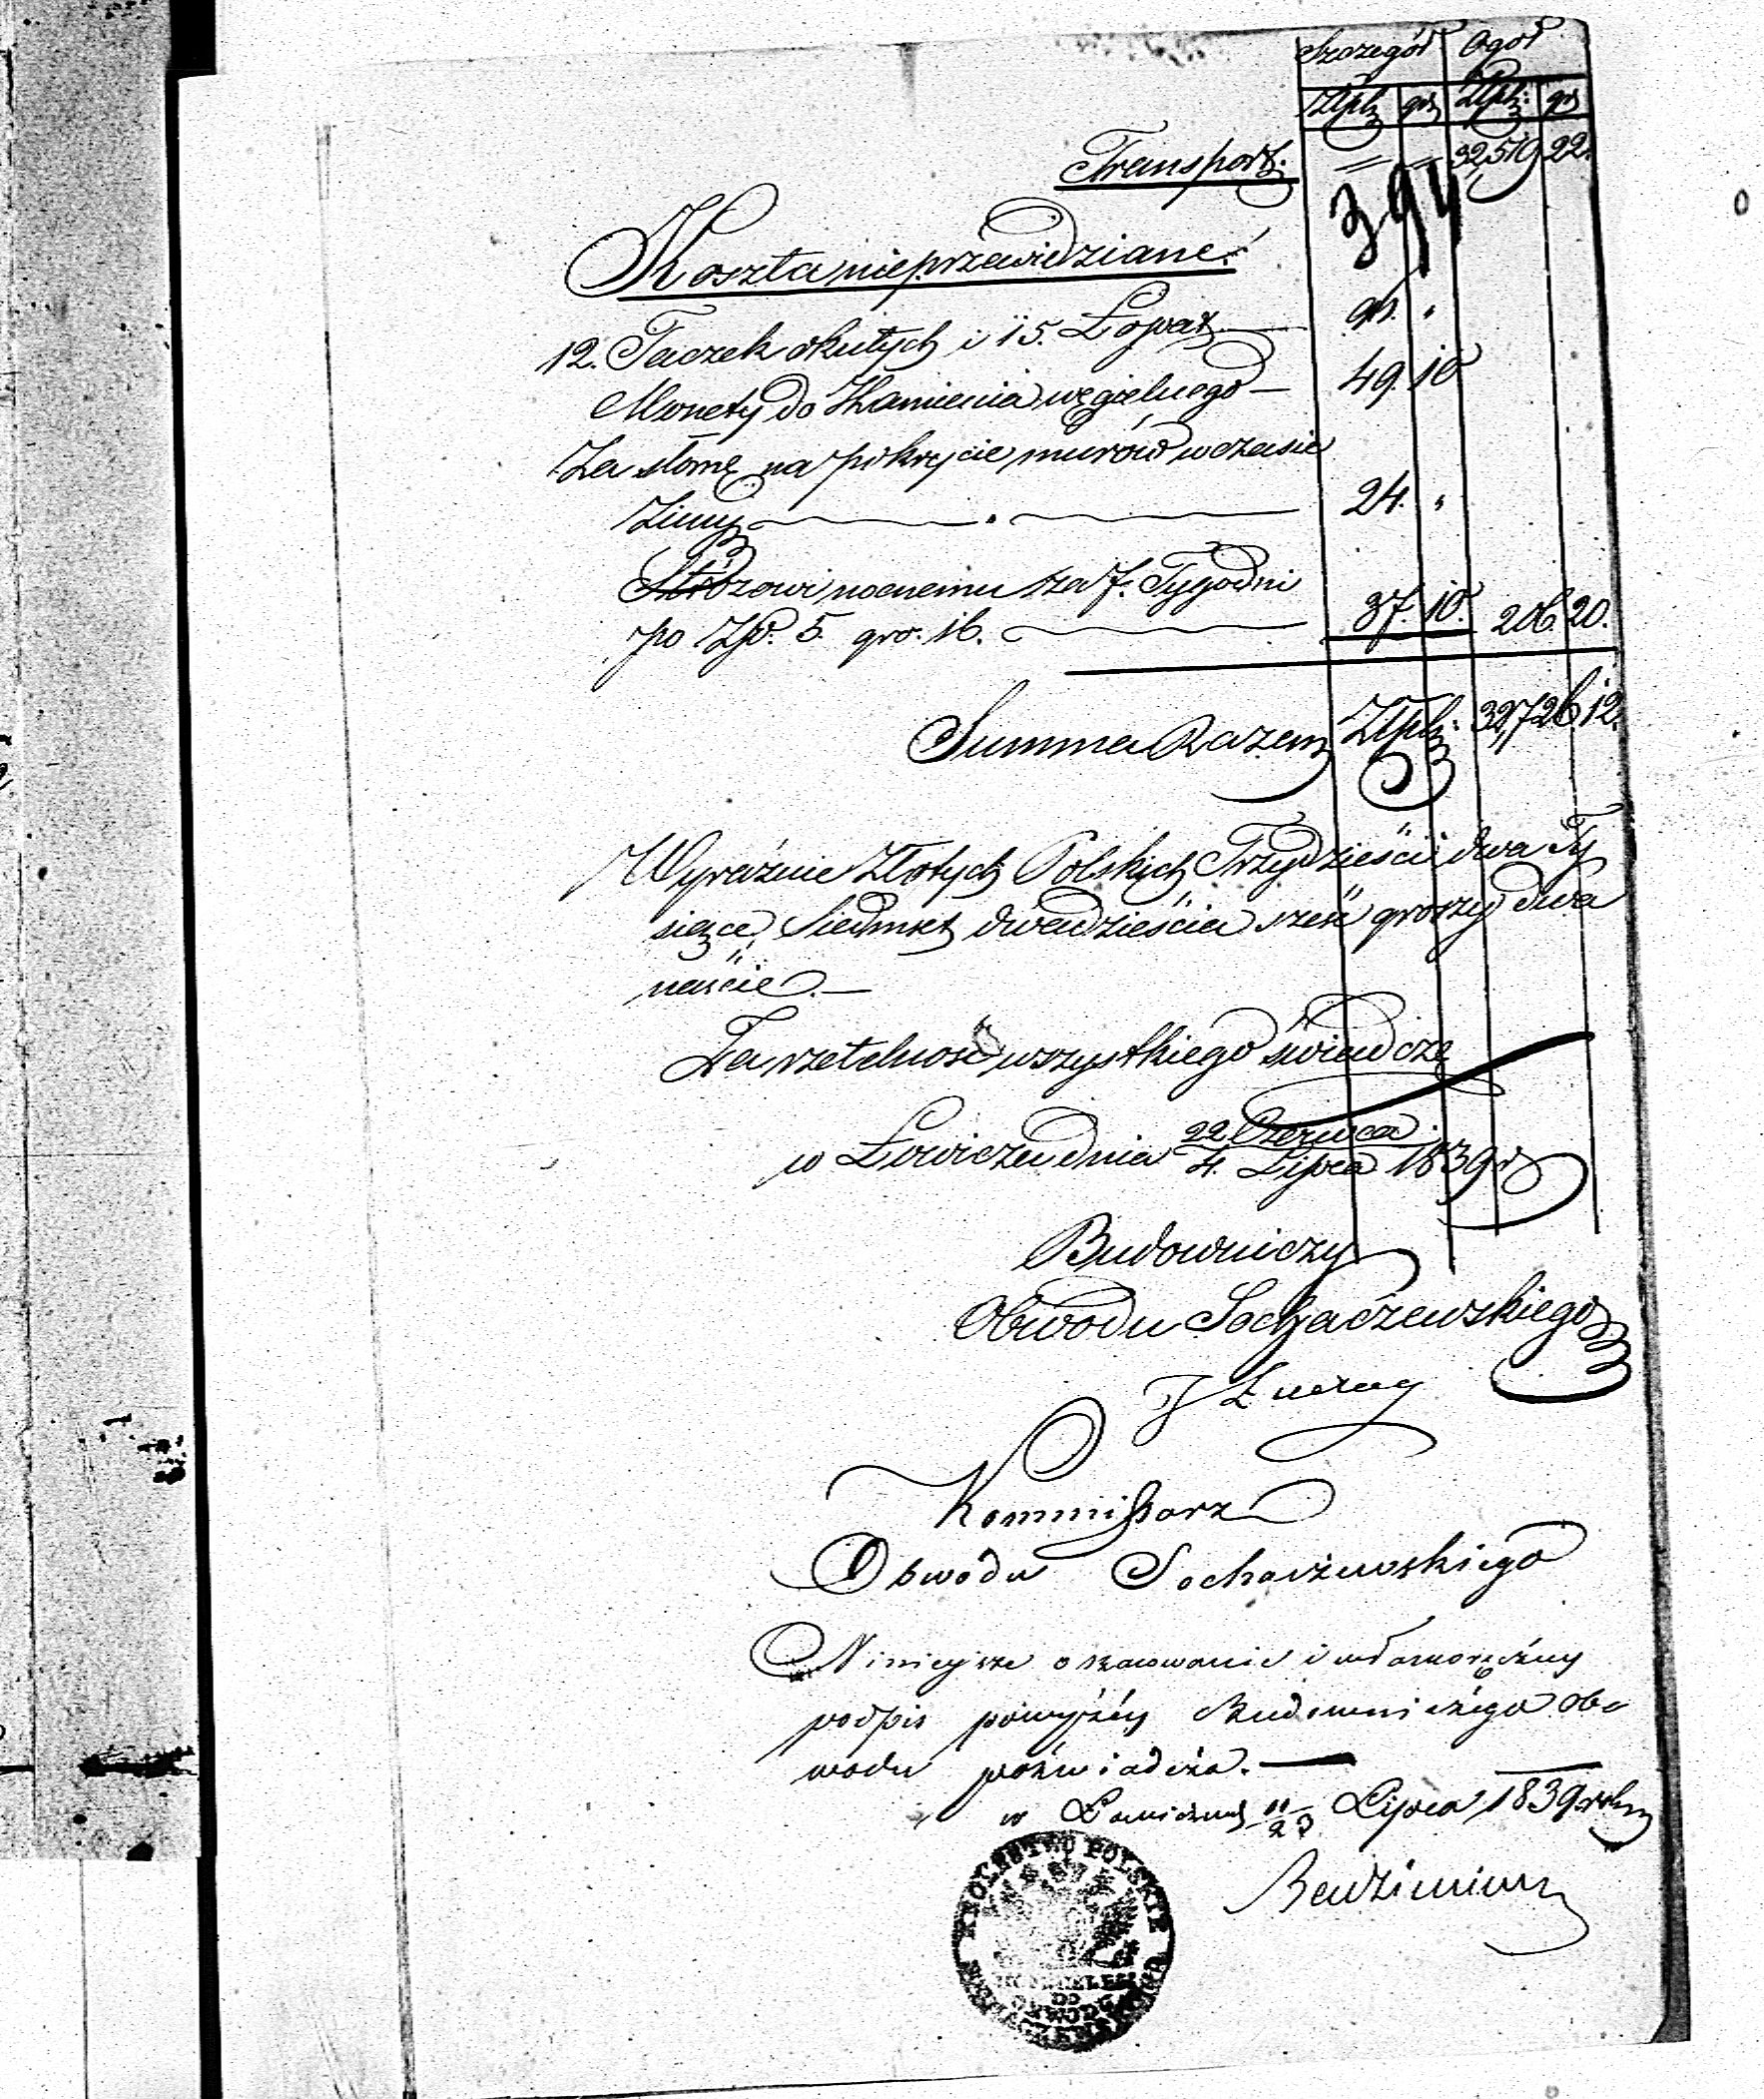 Szczegół Ogoł
Złpl: gr Złpl: gr
Transport: = = 32,519 22.
394
Koszta nieprzewidziane:
12. Taczek okutych i 15. Łopat — 96. "
Monety do Kamienia węgielnego — 49. 10
Za słomę na pokrycie murów w czasie
Zimy — 24. "
Stróżowi nocnemu za 7. Tygodni
po Złp. 5. gro. 16. — 37. 10. 206. 20.
Summa Razem Złpl: 32,726. 12.
Wyraźnie Złotych Polskich Trzydzieści dwa Ty
siące, Siedmset dwadzieścia sześć groszy dwa
naście. —
Za rzetelność wszystkiego świadczę
w Łowiczu dnia 22 Czerwca
4. Lipca 1839 r
Budowniczy
Obwodu Sochaczewskiego
Kommissarz
Obwodu Sochaczewskiego
Niniejsze oszacowanie i własnoręczny
podpis powyższy Budowniczego Ob
wodu poświadcza. —
w Łowiczu 11/23 Lipca 1839 roku
KROLESTWO POLSKIE